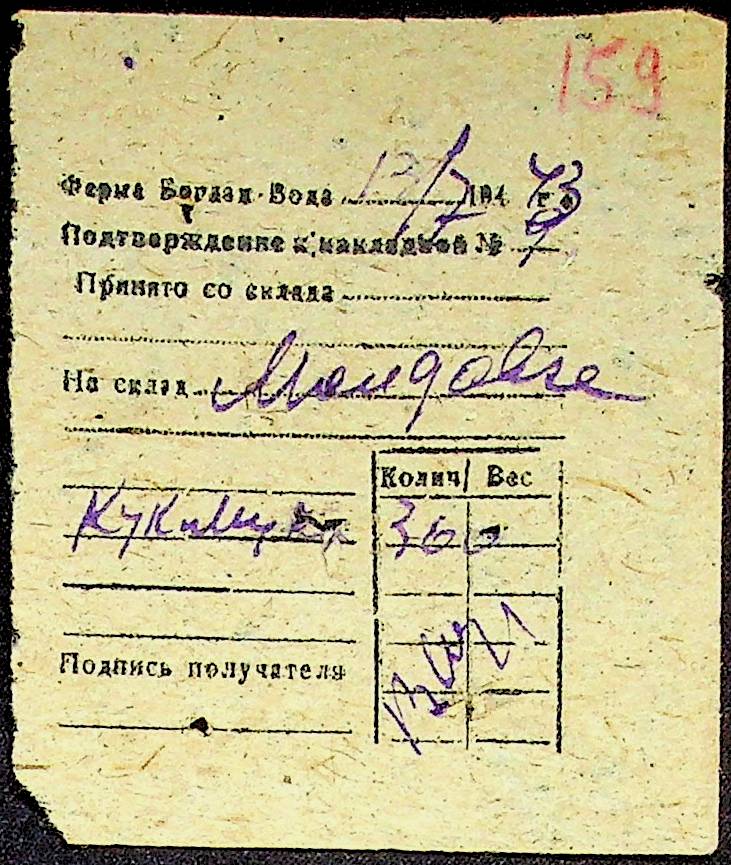 159
Ферма Богдан-Вода 13/7 194 43 г.
Подтверждение к накладной № 7
Принято со склада
На склад
Колич Вес
360
Подпись получателя